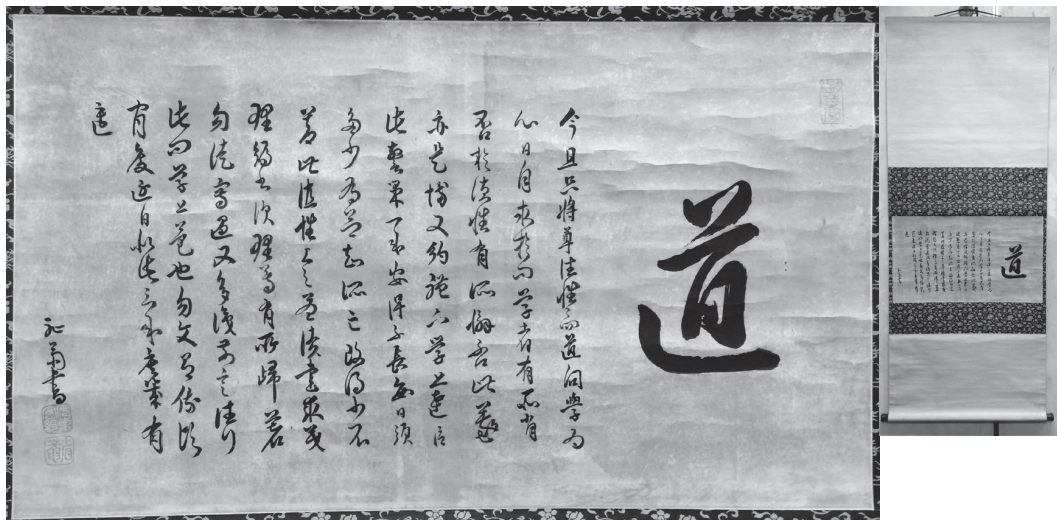 道
今且只將尊德性而道問學為
心日自求於問学者有所背
否於德性有所懈否此義
亦是博文約礼下学上達以
此警策一年安得不長每日須
多少為益知所亡改得少不
善此德性上之益讀書求義
理編書須理會有所歸著
勿徒寫過又多識前言往行
此問学上益也勿使有俄頃
閒度逐日似此三年庶幾有
進
書